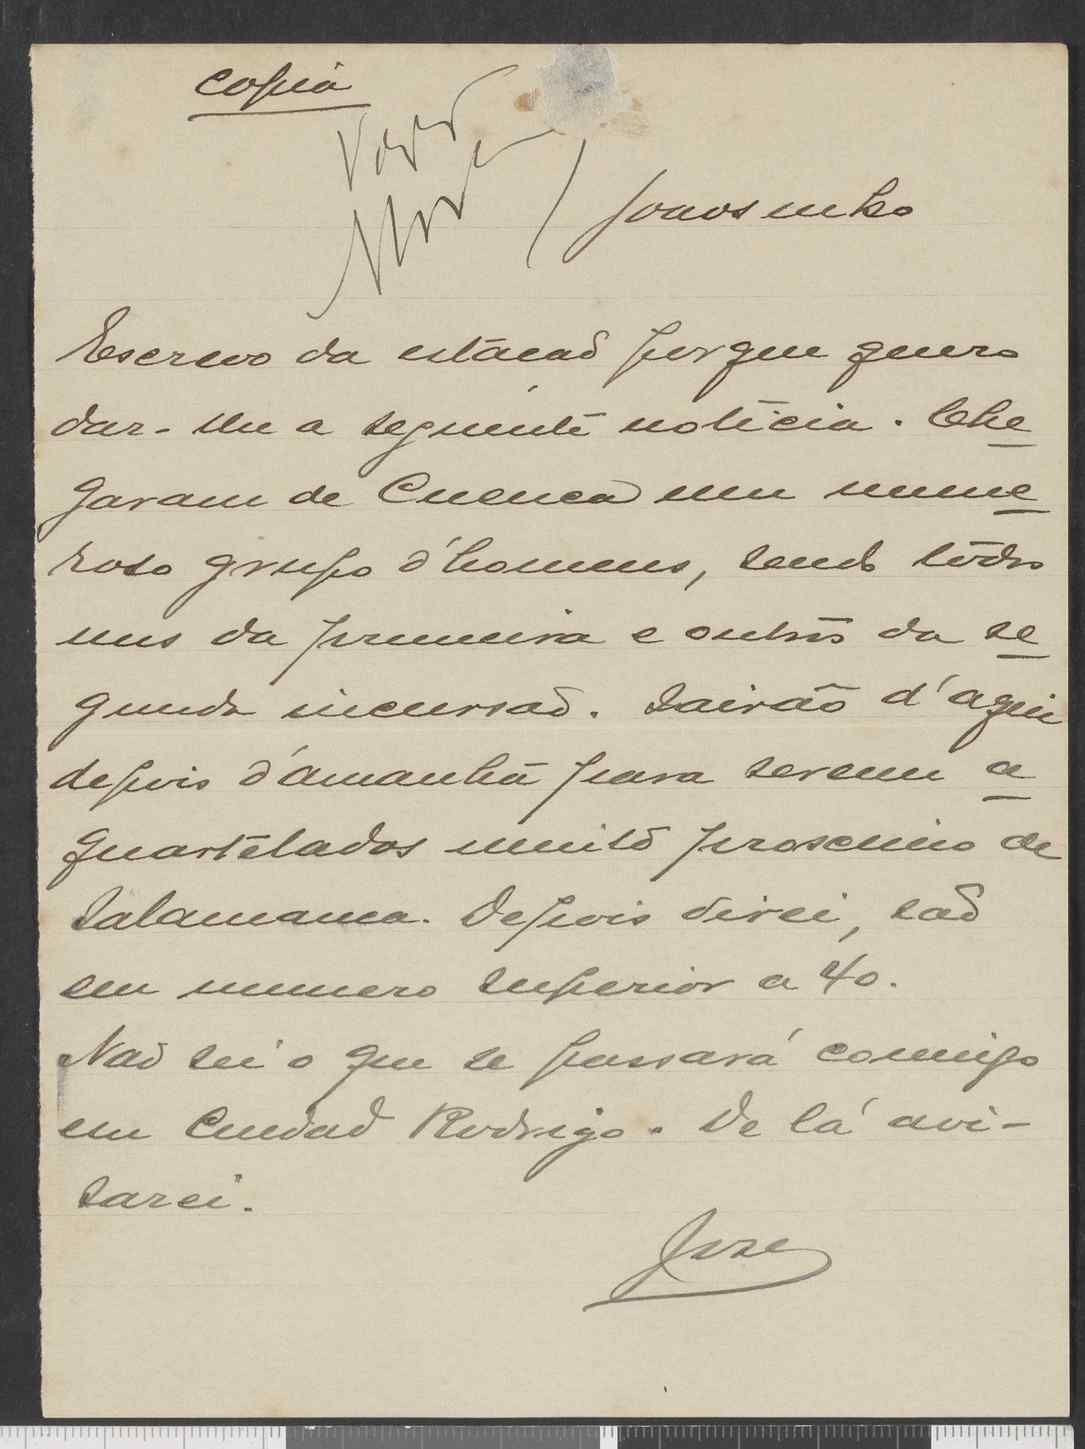 copia
Joãosinho
Escrevo da estação porque quero
dar-lhe a seguinte noticia. Che
garam de Cuenca um nume
roso grupo d'homens, sendo todos
uns da primeira e outros da se
gunda incursão. Sairão d'aqui
depois d'amanhã para serem a
quartelados muito proscimo de
Salamanca. Depois direi, são
em numero superior a 40.
Não sei o que se passará comigo
em Ciudad Rodrigo. De lá avi-
sarei.
José